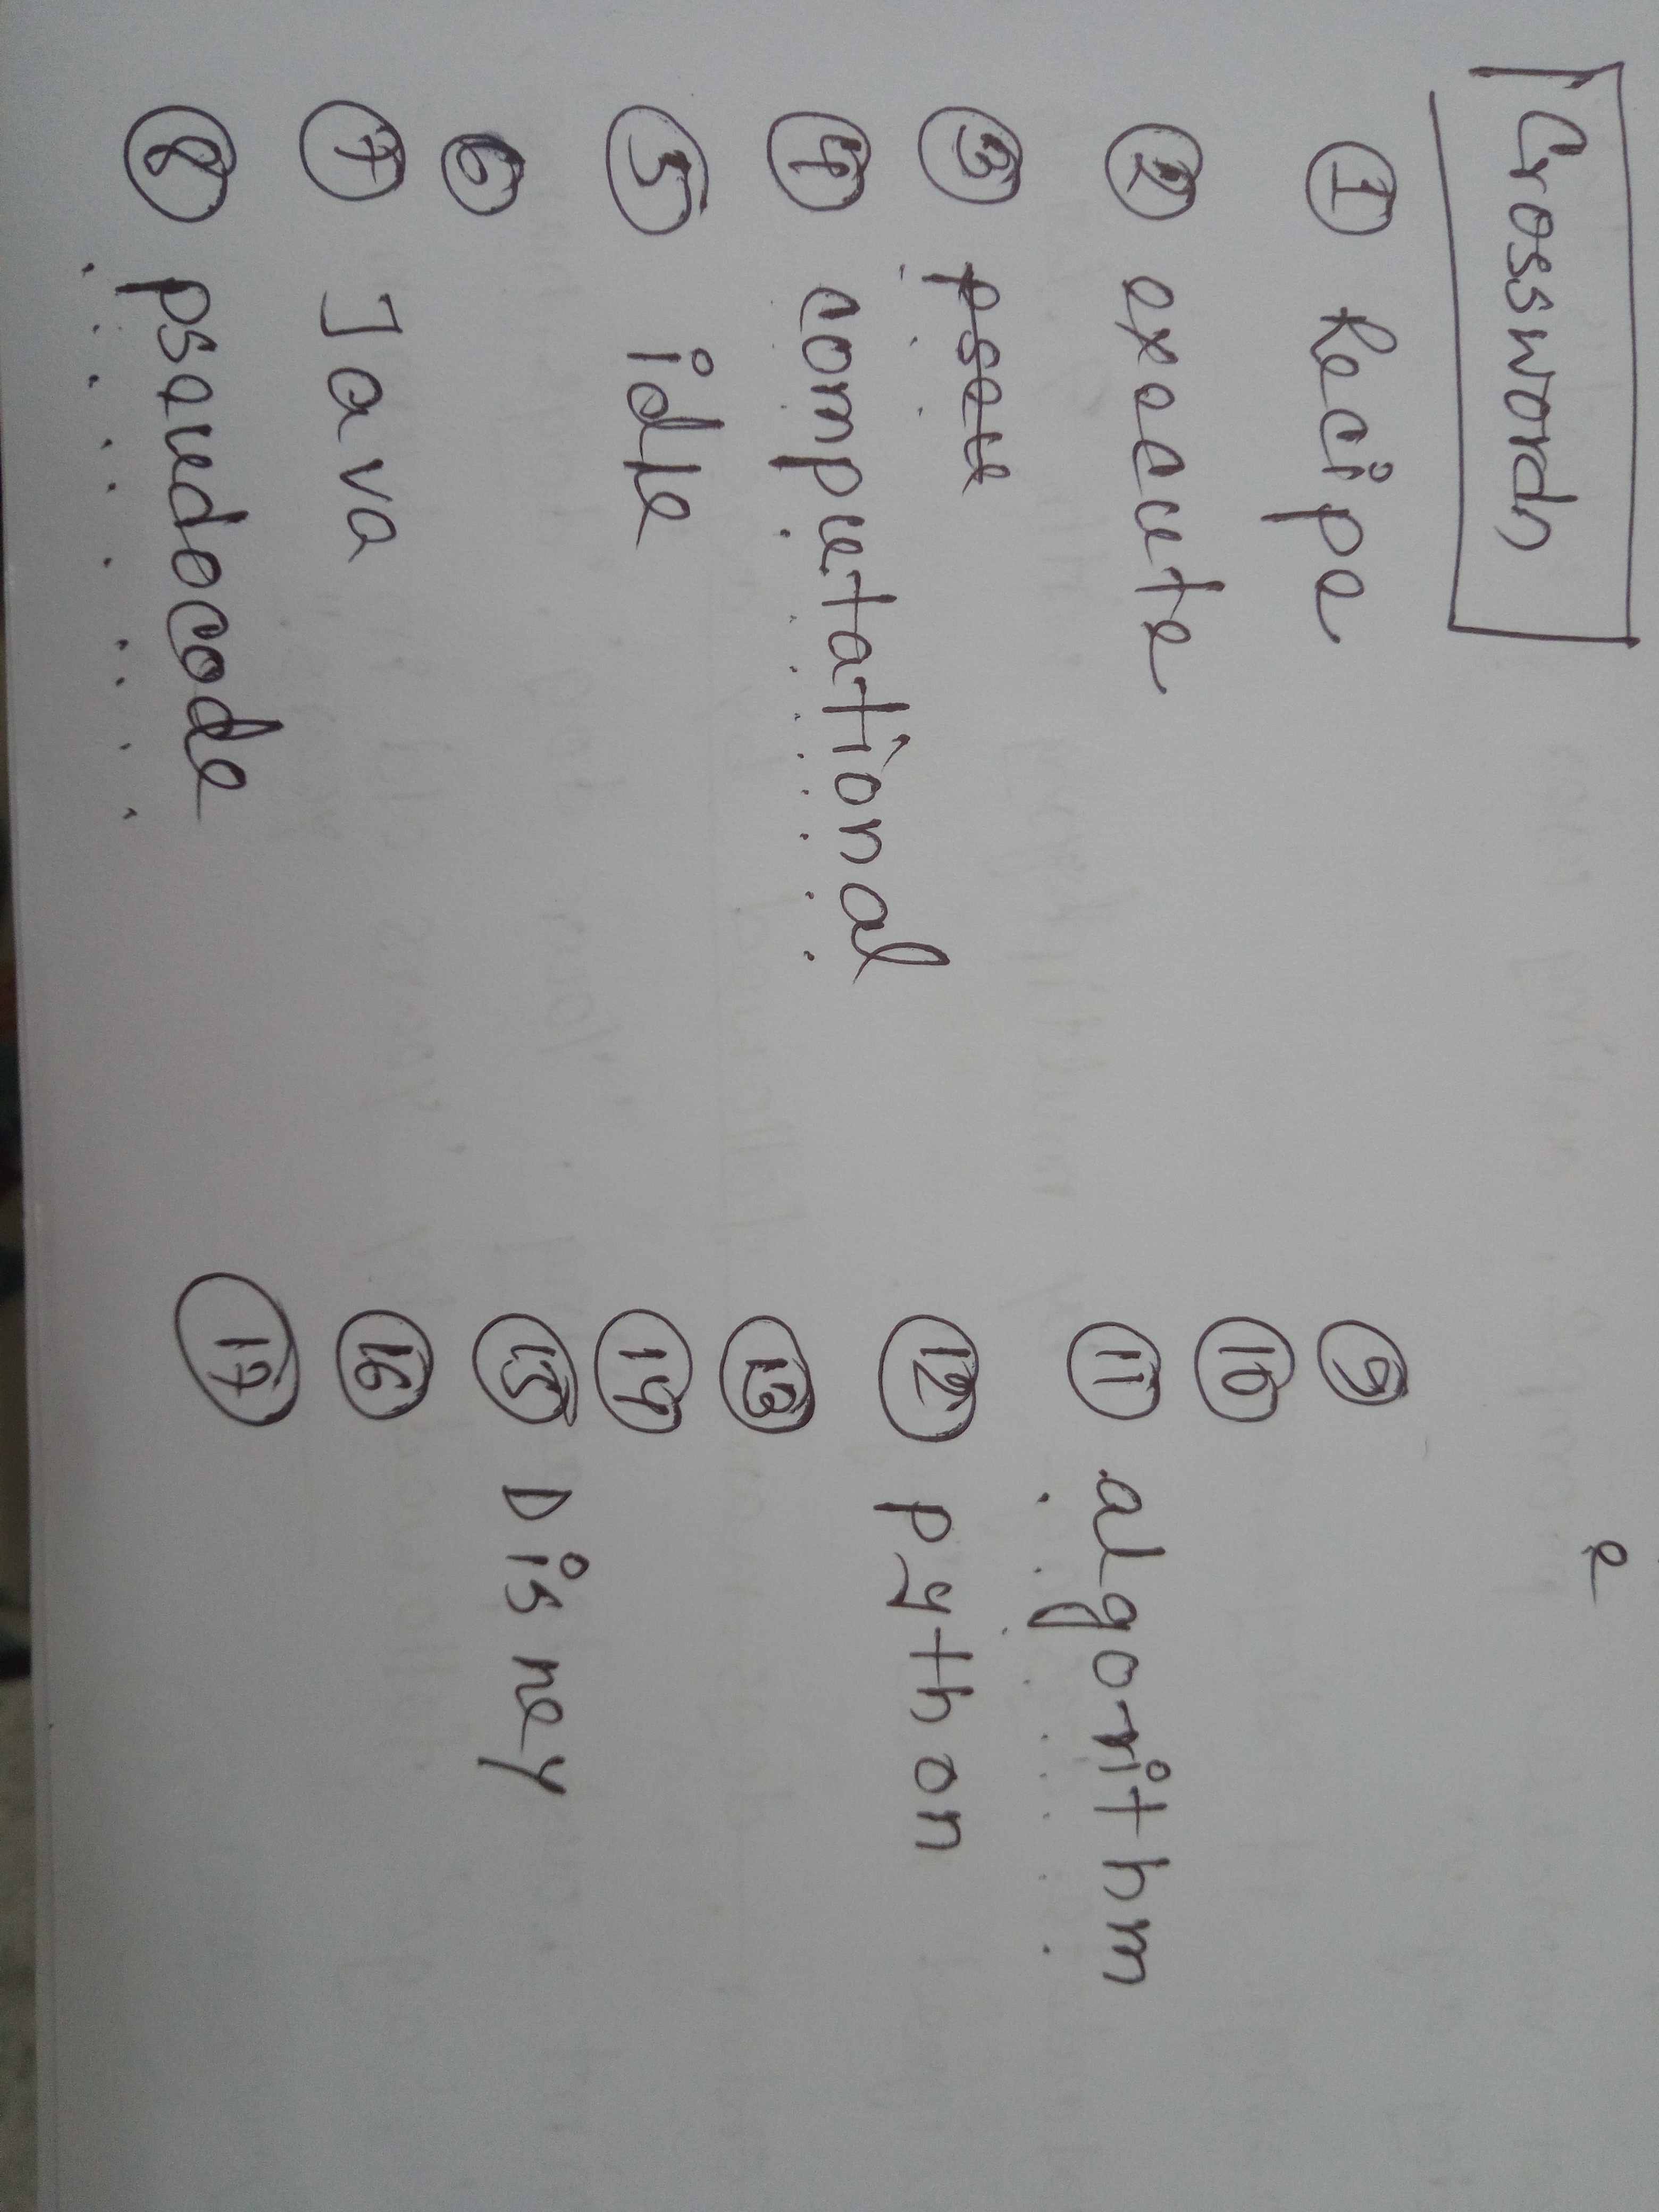 e
Crosswords
① Recipe
② execute
③ pseu
④ computational
⑤ idle
⑥
⑦ Java
⑧ pseudocode
⑨
⑩
⑪ algorithm
⑫ python
⑬
⑭
⑮ Disney
⑯
⑰